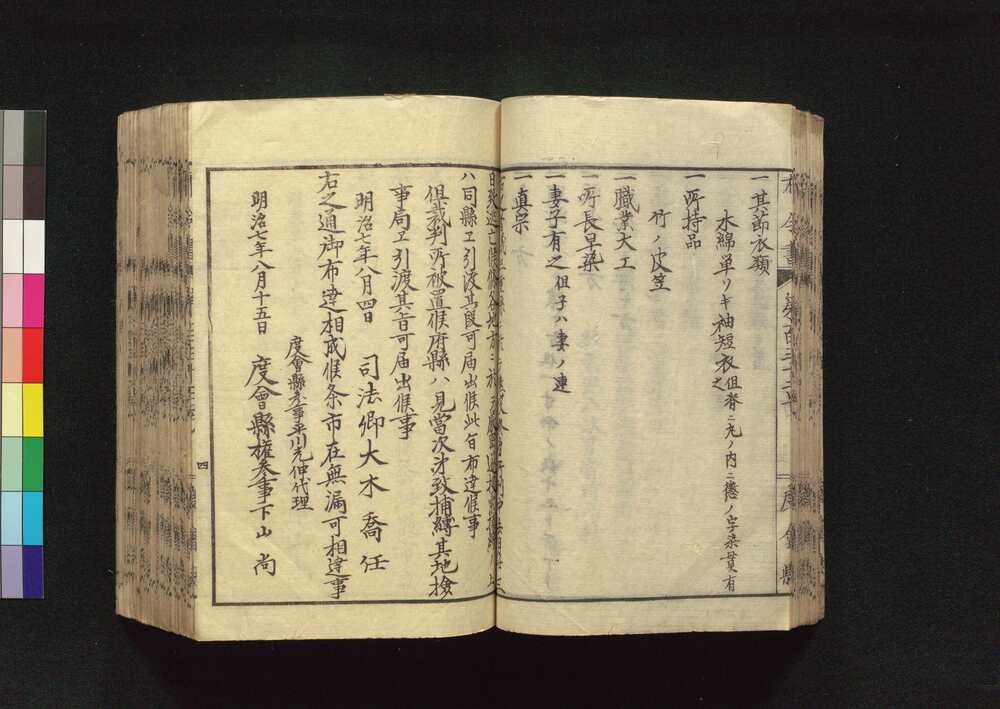 一其節衣類
水綿単ツギ袖短衣 但脊ニ丸ノ内ニ懲ノ字染貫有之
一所持品
竹ノ皮笠
一職業大工
一所長早染
一妻子有之 但子ハ妻ノ連
一真宗
ハ同縣ヱ引渡其段可届出候此旨布達候事
但裁判所被置候府縣ハ見當次第致捕縛其地檢
事局ヱ引渡其旨可届出候事
明治七年八月四日 司法卿大木喬任
右之通御布達相成候条市在無漏可相達事
度會縣参事平川光伸代理
明治七年八月十五日 度會縣權参事下山尚
四